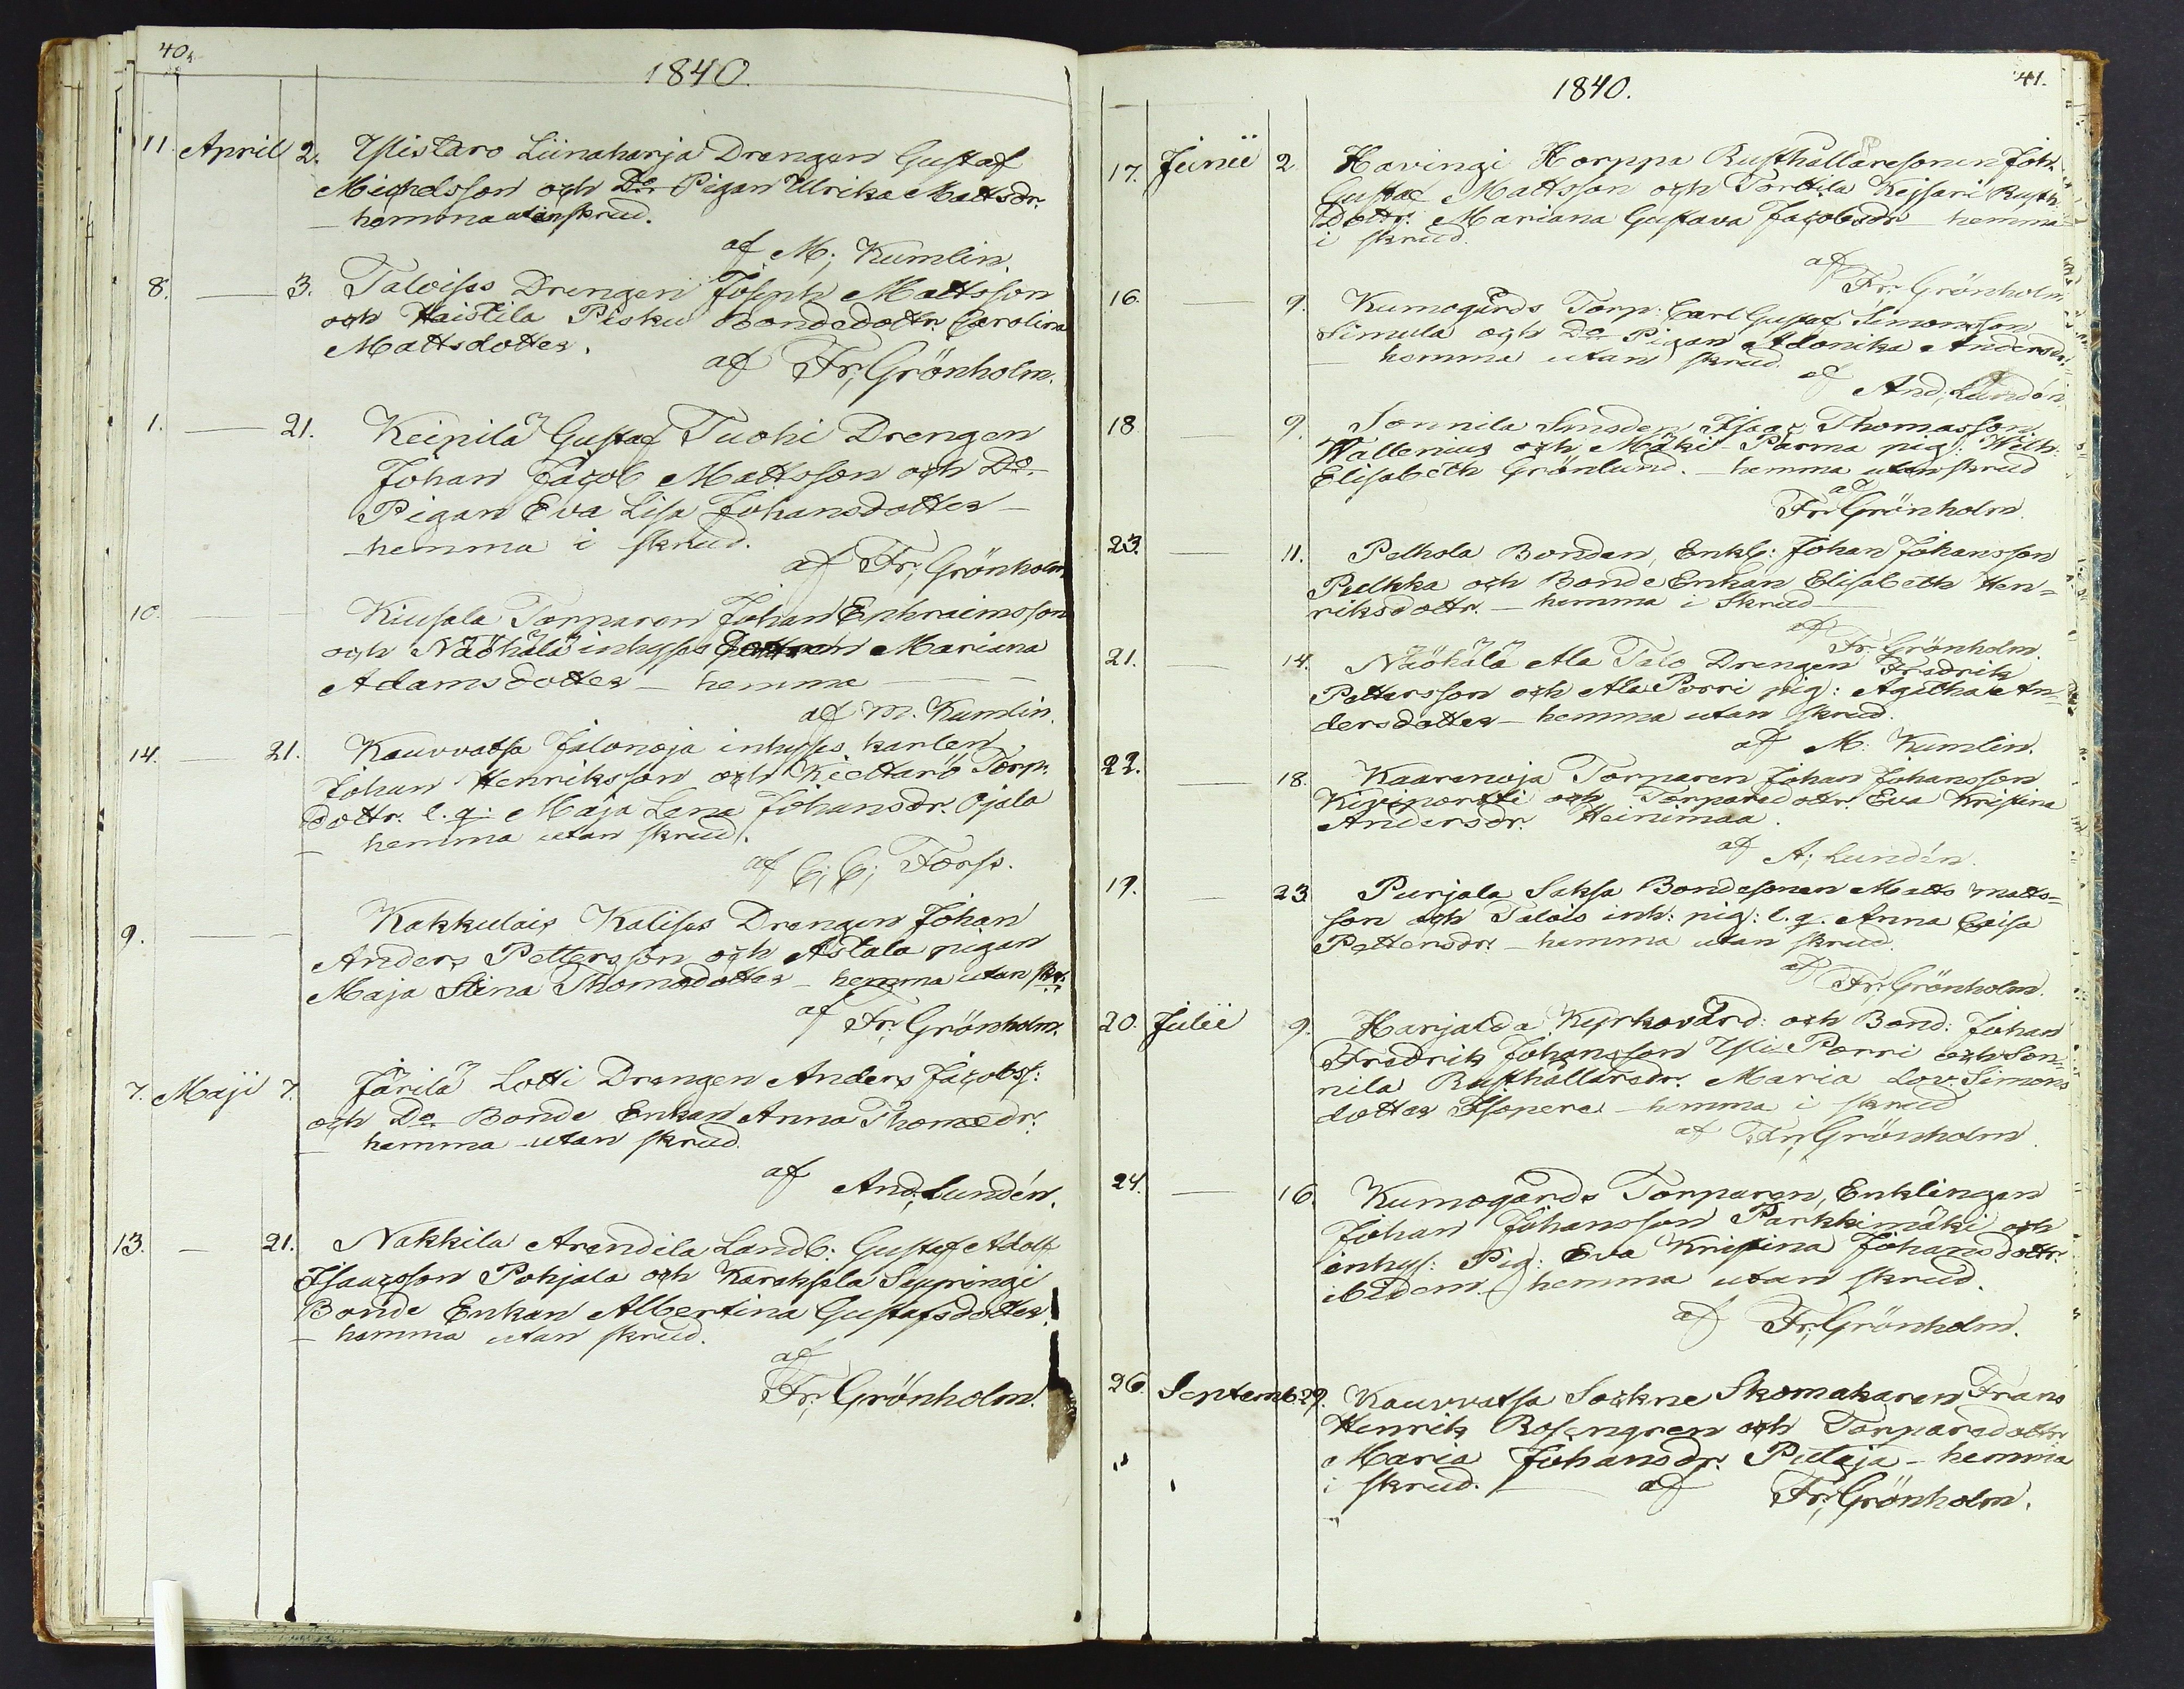 40.
1840.
11. April 2. Ylistaro Liinaharja Drengen Gustaf
Michelsson och Do Pigan Ulrika Mattsdr.
- hemma utan skrud.
af M; Kumlin.
8. — 3. Taloiss Drengen Joseph Mattsson
och Haistila Pisku Bondedottr. Carolina
Mattsdotter.
af Fr; Grönholm.
1. — 21. Keipilä Gustaf Tuohi Drengen
Johan Jacob Mattsson och Do
Pigan Eva Lisa Johansdotter —
- hemma i skrud.
af Fr; Grönholm
10. — — Kiusala Torparen Johan Ephraimsson
och Näöhälä inhyses Mariana
Adamsdotter — hemma —
af M. Kumlin.
14. — 21. Kauvvatsa Jalonoja inhyses karlen
Johan Henriksson och Kiettarö Torp.
dottr. l. q: Maja Lena Johansdr. Ojala
- hemma utan skrud.
af C; C; Torp.
9. — — Kakkulais Kalises Drengen Johan
Anders Pettersson och Astala pigan
Maja Stina Thomædotter — hemma utan skr:
af Fr; Grönholm.
7. Maji 7. Järilä Lotti Drengen Anders Jacobss:
och Do Bonde Enkan Anna Thomædr:
- hemma utan skrud.
af And; Lundén.
13. — 21. Nakkila Arendila Landb: Gustaf Adolf
Isaacsson Pohjala och Karaksela Seppringi
Bonde Enkan Albertina Gustafsdotter.
- hemma utan skrud.
af
Fr; Grönholm.
41.
1840.
17. Junii 2 Havingi Horppa Rusthållaresonen Joh.
Gustaf Mattsson och Torttila Kejsari Rusth.
Dottr. Mariana Gustava Jacobsdr — hemma
i skrud.
af
Fr; Grönholm
16. — 9. Kumogårds Torp. Carl Gustaf Simonsson
Simula och Do Pigan Adonika Andersdr.
- hemma utan skrud.
af And; Lundén.
18. — 9. Sonnila Smeden Isaac Thomasson
Wallenius och Mäki-Parma pig: Wilh.
Elisabeth Grönlund. — hemma utan skrud
af
Fr; Grönholm.
23. — 11. Pelhola Bonden, Enkl: Johan Johansson
Pulkka och Bonde Enkan Elisabeth Hen=
riksdottr. — hemma i Skrud
af
Fr; Grönholm.
21. — 14. Näöhälä Ala Talo Drengen Fredrik
Pettersson och Ala Porri pig: Agatha An=
dersdotter — hemma utan skrud.
af M: Kumlin.
22. — 18. Kaaranoja Torparen Johan Johansson
Kiviportti och Torparedottr. Eva Kristina
Andersdr. Heinimaa.
af A; Lundén.
19. — 23 Purjala Saksa Bondesonen Matts Matts=
son och Talois inh: pig: l. q. Anna Caisa
Pettersdr. — hemma utan skrud.
af
Fr; Grönholm.
20. Julii 9. Harjalda Kyrkovärd: och Bond: Johan
Fredrik Johansson Yli Porri och Son=
nila Rusthållaredr. Maria Lov. Simons
dotter Isopere — hemma i skrud
af Fr; Grönholm.
24. — 16. Kumogårds Torparen, Enklingen
Johan Johansson Parkkimäki och
inhys: Pig: Eva Kristina Johansdottr.
ibidem. hemma utan skrud.
af Fr; Grönholm.
26. Septemb: 29. Kauvvatsa Sockne Skomakaren Frans
Henrik Rosengren och Torparedottr
Maria Johansdr. Pitäja — hemma
i skrud. — af Fr; Grönholm.